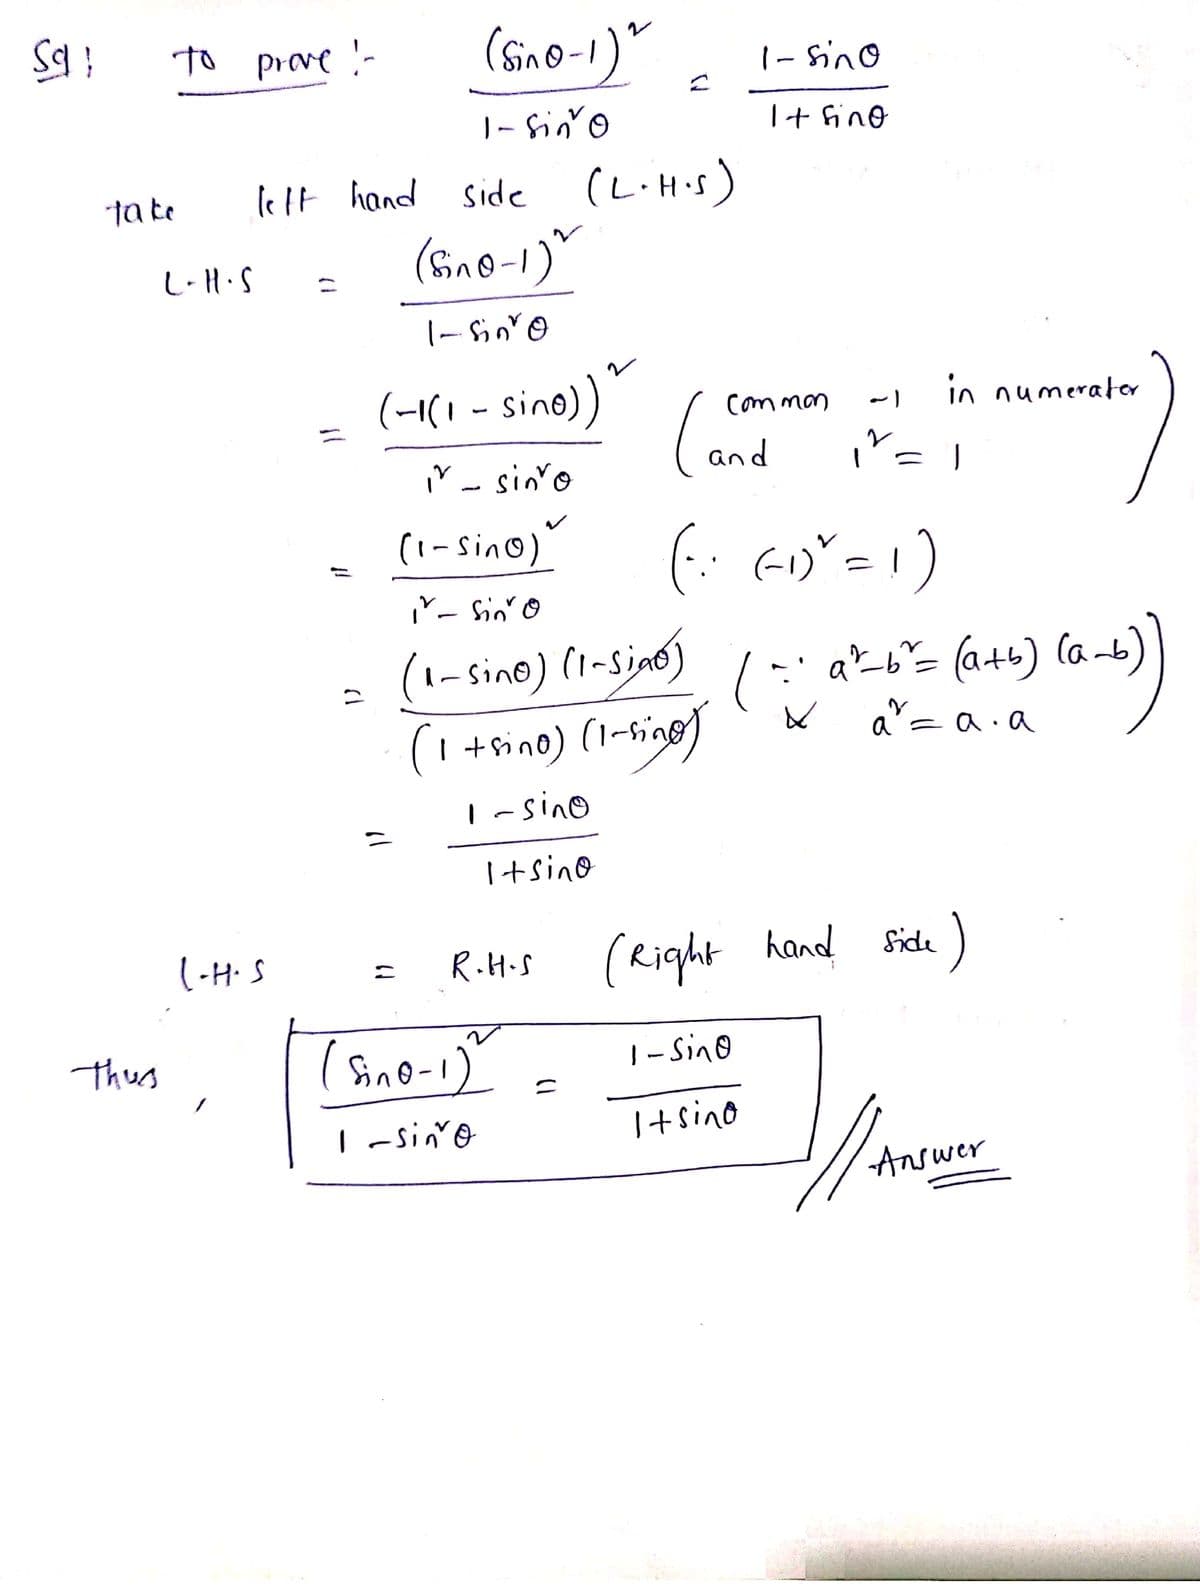 Sol: To prove :- (sinθ-1)² / 1-sin²θ = 1-sinθ / 1+sinθ
take left hand side (L.H.S)
L.H.S = (sinθ-1)² / 1-sin²θ
= (-1(1-sinθ))² / 1²-sin²θ (common -1 in numerater and 1² = 1)
= (1-sinθ)² / 1²-sin²θ (∵ (-1)² = 1)
= (1-sinθ) (1-sinθ) / (1+sinθ) (1-sinθ) (∵ a²-b² = (a+b) (a-b) & a² = a.a)
= 1-sinθ / 1+sinθ
L.H.S = R.H.S (Right hand side)
Thus, (sinθ-1)² / 1-sin²θ = 1-sinθ / 1+sinθ // Answer